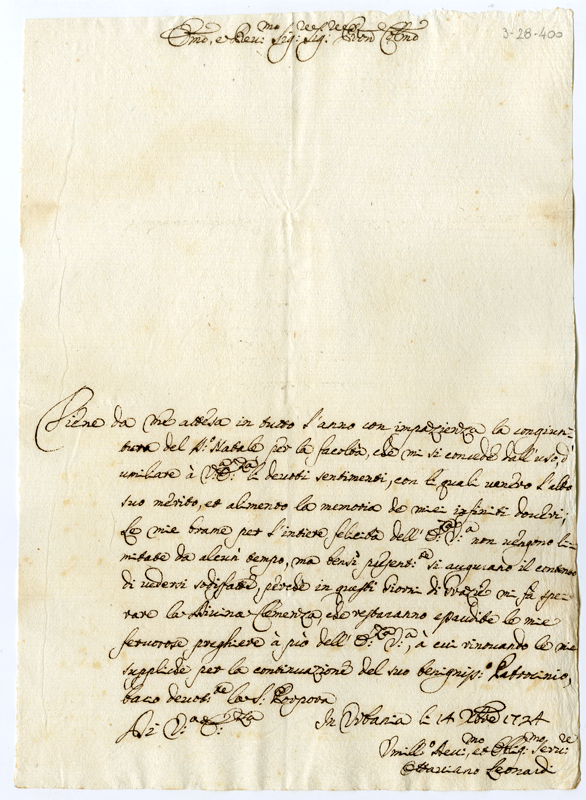 Em̃o, e Rev:mo Sig:re Sig:re Pron Colmo
3-28-400
Viene da me attesa in tutto l'anno con impazienza la congiun-
tura del S. Natale per la facoltà, che mi si concede dall'uso, d'
umiliare à V.ra Em.za li devoti sentimenti, con li quali venero l'alto
suo merito, et alimento la memoria de miei infiniti doveri;
Le mie brame per l'intiera felicità dell' E.za V.a non vengono li-
mitate da alcun tempo, ma bensì present:te si augurano il contento
di vedersi sodisfatte, perche in questi Giorni di Grazie mi fà spe-
rare la Divina Clemenza, che restaranno esaudite le mie
fervorose preghiere à prò dell' E.za V.a, à cui rinovando le mie
suppliche per la continuazione del suo benigniss:o Patrocinio,
bacio devot:te la S. Porpora
Di V.a E.za
In Urbania li 14 Xbre 1724
Umill:o Dev:mo, et Oblig:mo Serv:re
Ottaviano Leonardi